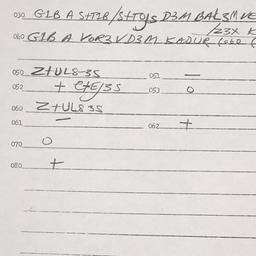 030 G1B A S+T2B/S+TOJS D3M BAL3M VE
/23X K
040 G1B A VOR3V D3M KADUR (060 (
050 Z+UL8-3S 051 —
052 + C+E/3S 053 O
060 Z+UL8 3S
061 — 062 +
070 O
080 +